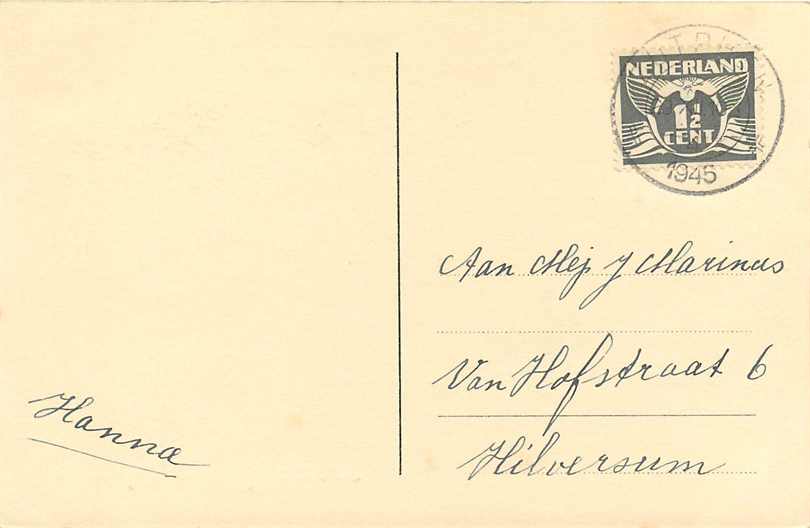 NEDERLAND
1½
CENT
1945
Aan Mej J Marinus
Van Hofstraat 6
Hilversum
Hanna